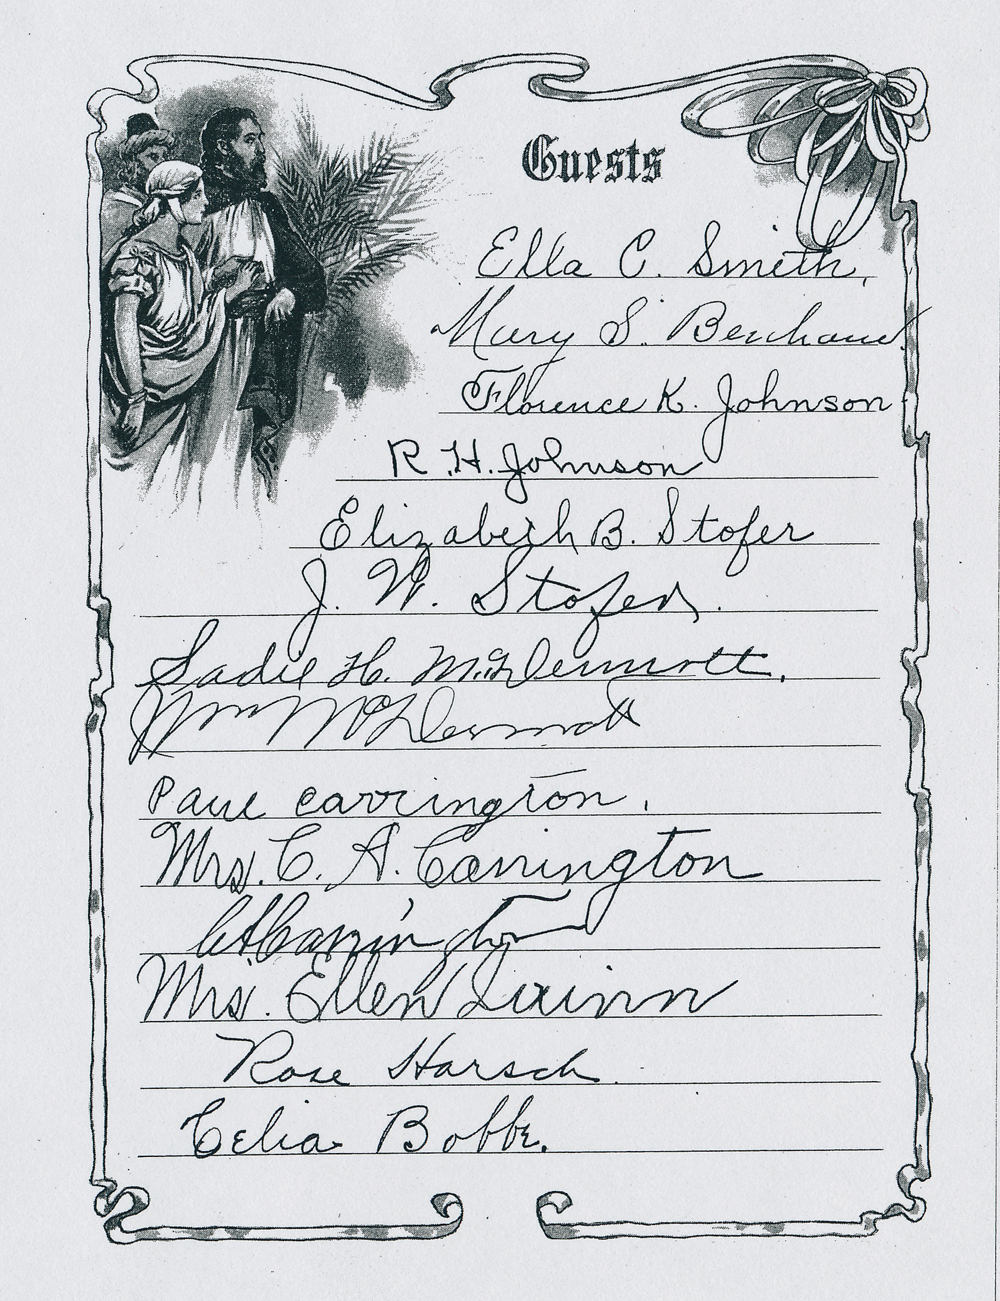 Guests
Ella C. Smith,
Mary S.
Florence K. Johnson
R. H. Johnson
Elizabeth B. Stofer
J. W. Stofer.
Sadie H. McDermott.
Wm McDermott
Paul Carrington.
Mrs. C. A. Carrington
CA Carrington
Mrs. Ellen Quinn
Rose Harsch.
Celia Bobbe.